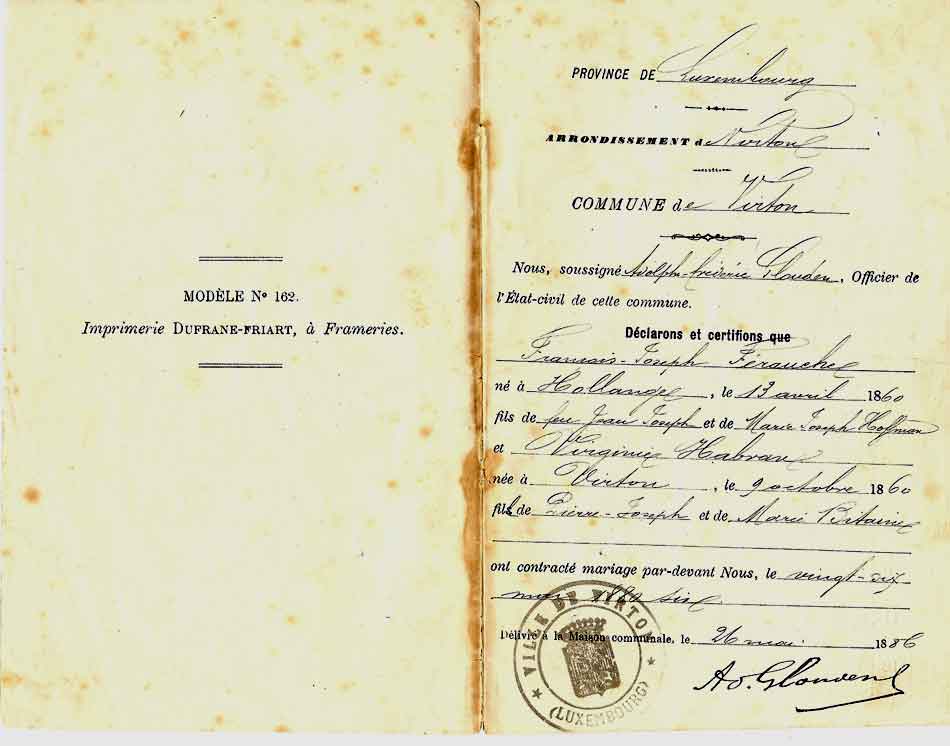 MODÈLE Nº 162.
Imprimerie DUFRANE-FRIART, à Frameries.
PROVINCE DE Luxembourg
ARRONDISSEMENT de Virton
COMMUNE de Virton
Nous, soussigné Adolph-Frédéric Glouden, Officier de
l'État-civil de cette commune.
Déclarons et certifions que
François-Joseph Férauche
né à Hollange, le 13 avril 1860
fils de feu Jean Joseph et de Marie Joseph Hoffman
et Virginie Habran
née à Virton, le 9 octobre 1860
fils de Pierre-Joseph et de Marie
ont contracté mariage par-devant Nous, le vingt-six
mai 1880 six
Délivré à la Maison communale, le 26 mai 1886
VILLE DE VIRTON
(LUXEMBOURG)
Ad. Glouden